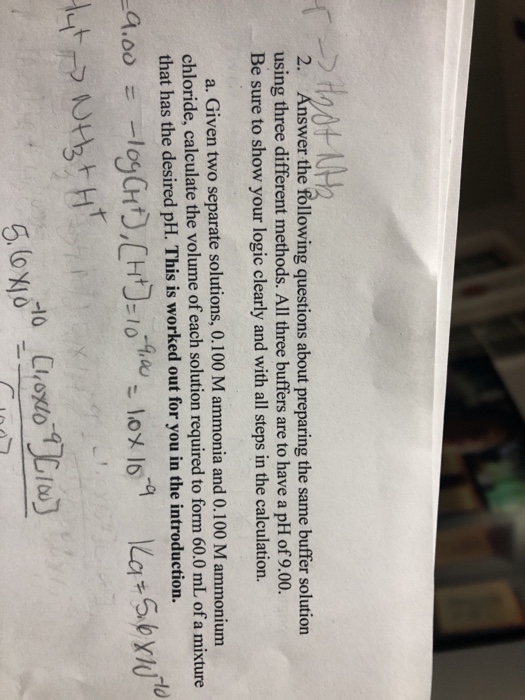 → H2O + NH3
2. Answer the following questions about preparing the same buffer solution
using three different methods. All three buffers are to have a pH of 9.00.
Be sure to show your logic clearly and with all steps in the calculation.
a. Given two separate solutions, 0.100 M ammonia and 0.100 M ammonium
chloride, calculate the volume of each solution required to form 60.0 mL of a mixture
that has the desired pH. This is worked out for you in the introduction.
9.00 = -log(H+), [H+] = 10^-9.00 = 1.0 x 10^-9 Ka = 5.6 x 10^-10
H4+ → NH3 + H+
5.6 x 10^-10 = [1.0x10^-9][.100]